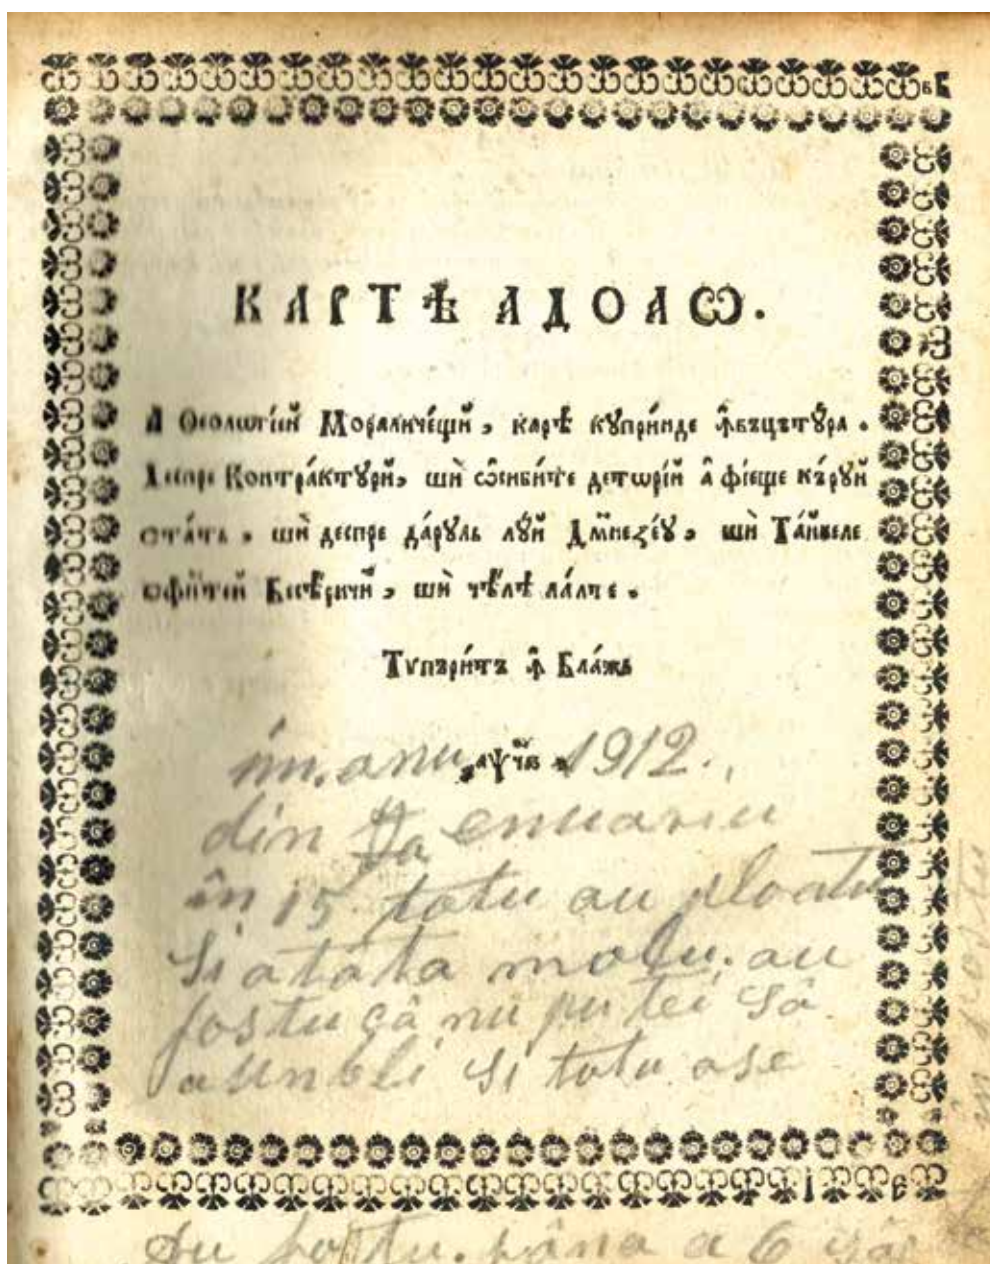 КАРТѢ АДОАѠ.
А Ѳеологїей Моралнчещй, карѣ кꙋпри́нде ꙟвъцътꙋ́ра.
Деспре Контра́ктꙋрй, шѝ ѡ҆сибите деторі́й а҆ фїеще кѣрꙋй
ста́тъ, шѝ деспре да́рꙋль лꙋ́й Дмнезе́ꙋ, шѝ Та́йнеле
сфи́нтей Бесѣричй, шѝ чѣлѣ ла́лте.
Тѵпъри́тъ ꙟ Бла́жъ
им. anu аѱчв 1912.
din enuariu
în 15 totu au ploatu
Si atâta molu. au
fostu çâ nu putei sâ
Si totu ase
Au fostu. pâna a 6